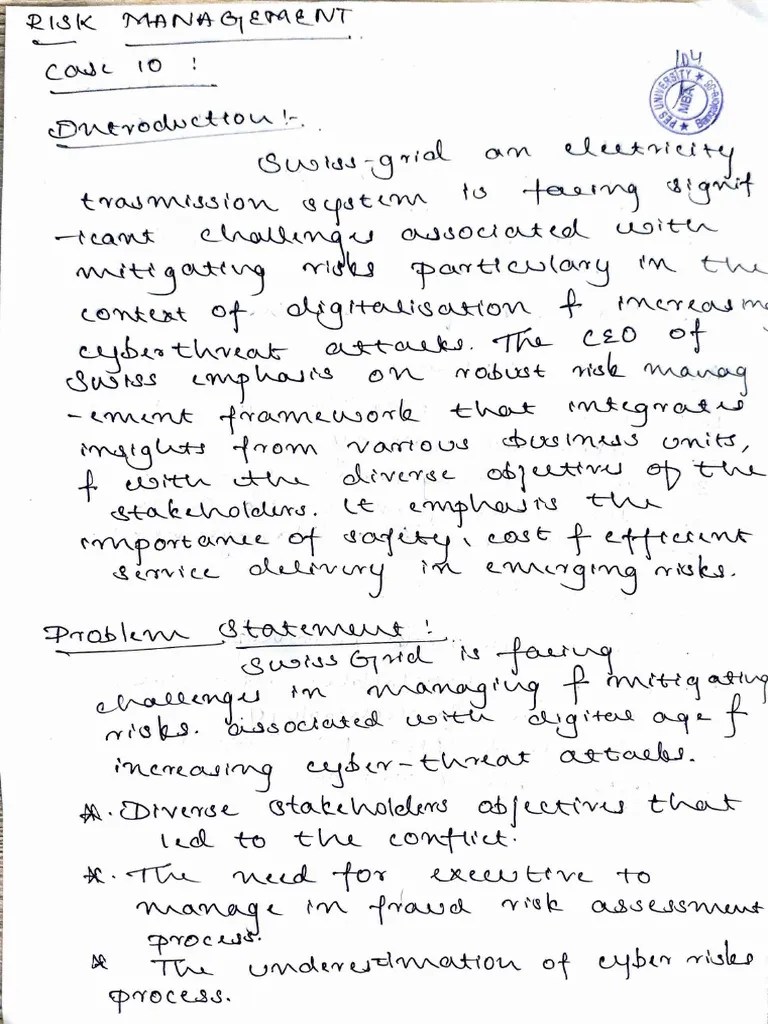 RISK MANAGEMENT
Case 10 :
104
PES UNIVERSITY
MBA
Introduction :-
Swiss-grid an electricity
trasmission system is facing signif
-icant challenges associated with
mitigating risks particulary in the
context of digitalisation & increasin
cyberthreat attacks. The CEO of
Swiss emphasis on robust risk manag
-ement framework that integrates
insights from various business units,
& with the diverse objectives of the
stakeholders. It emphasis the
importance of safity, cost & efficient
service delivery in emerging risks.
Problem Statement :
Swiss Grid is facing
challenges in managing & mitigating
risks. associated with digital age &
increasing cyber-threat attacks.
*. Diverse stakeholders objectives that
led to the conflict.
*. The need for executive to
manage in fraud risk assessment
process.
* The underestimation of cyber risks
process.